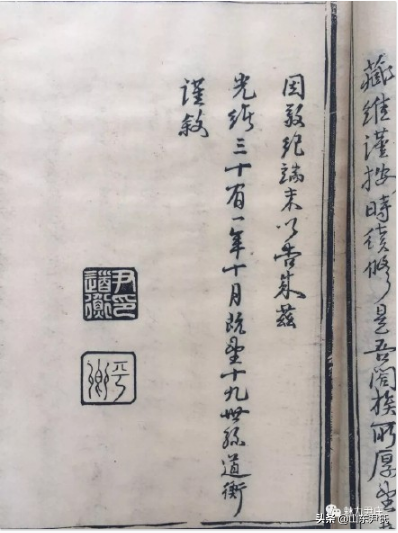 藏維謹按時續修是吾闔族所厚望
因敬紀端末以告來茲
光緒三十有一年十月既望十九世孫道衡
謹敘
尹印
道衡
头条 @山东尹氏